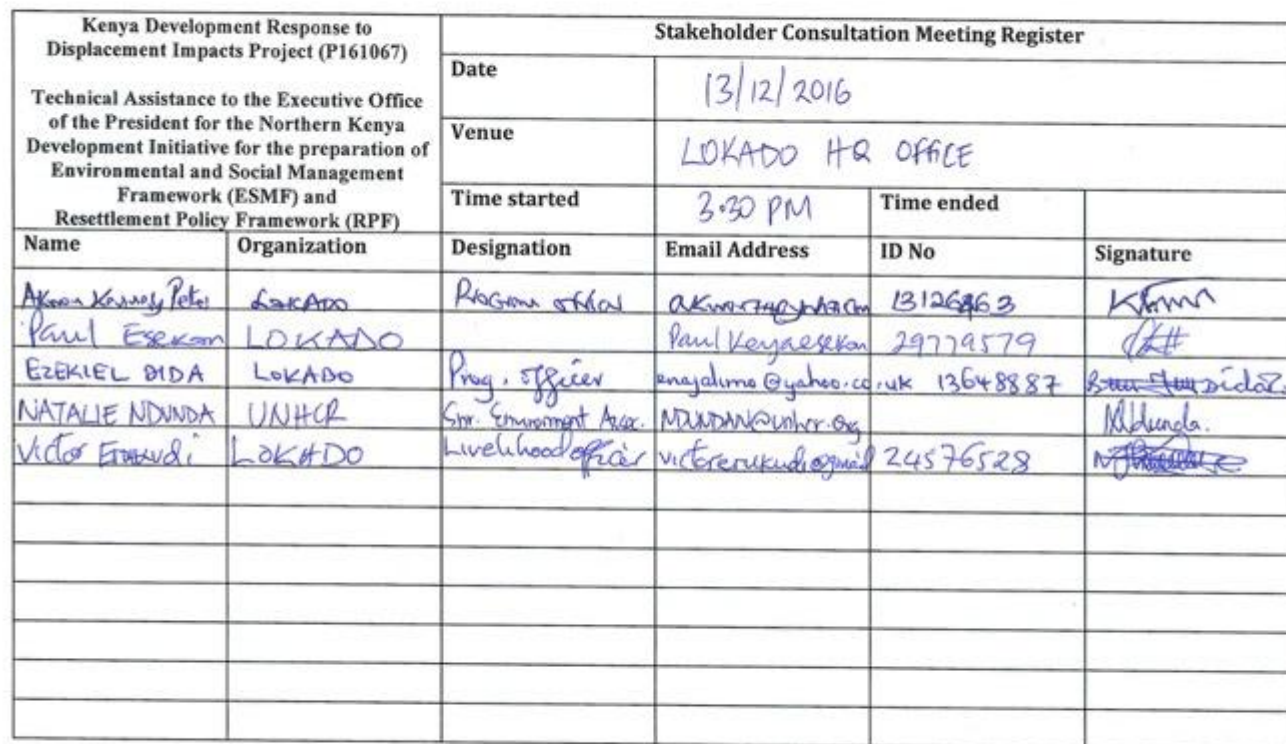 Kenya Development Response to
Displacement Impacts Project (P161067)
Technical Assistance to the Executive Office
of the President for the Northern Kenya
Development Initiative for the preparation of
Environmental and Social Management
Framework (ESMF) and
Resettlement Policy Framework (RPF)
Stakeholder Consultation Meeting Register
Date 13/12/2016
Venue LOKADO HQ OFFICE
Time started 3.30 PM Time ended
Name Organization Designation Email Address ID No Signature
Peter LOKADO
Paul LOKADO 29779579
EZEKIEL DIDA LOKADO Prog. officer enajalimo@yahoo.co.uk 13648887
NATALIE NDUNDA UNHCR Snr. Environment Assoc. NDUNDAN@unhcr.org Ndunda.
Victor LOKADO Livelihood officer 24576528